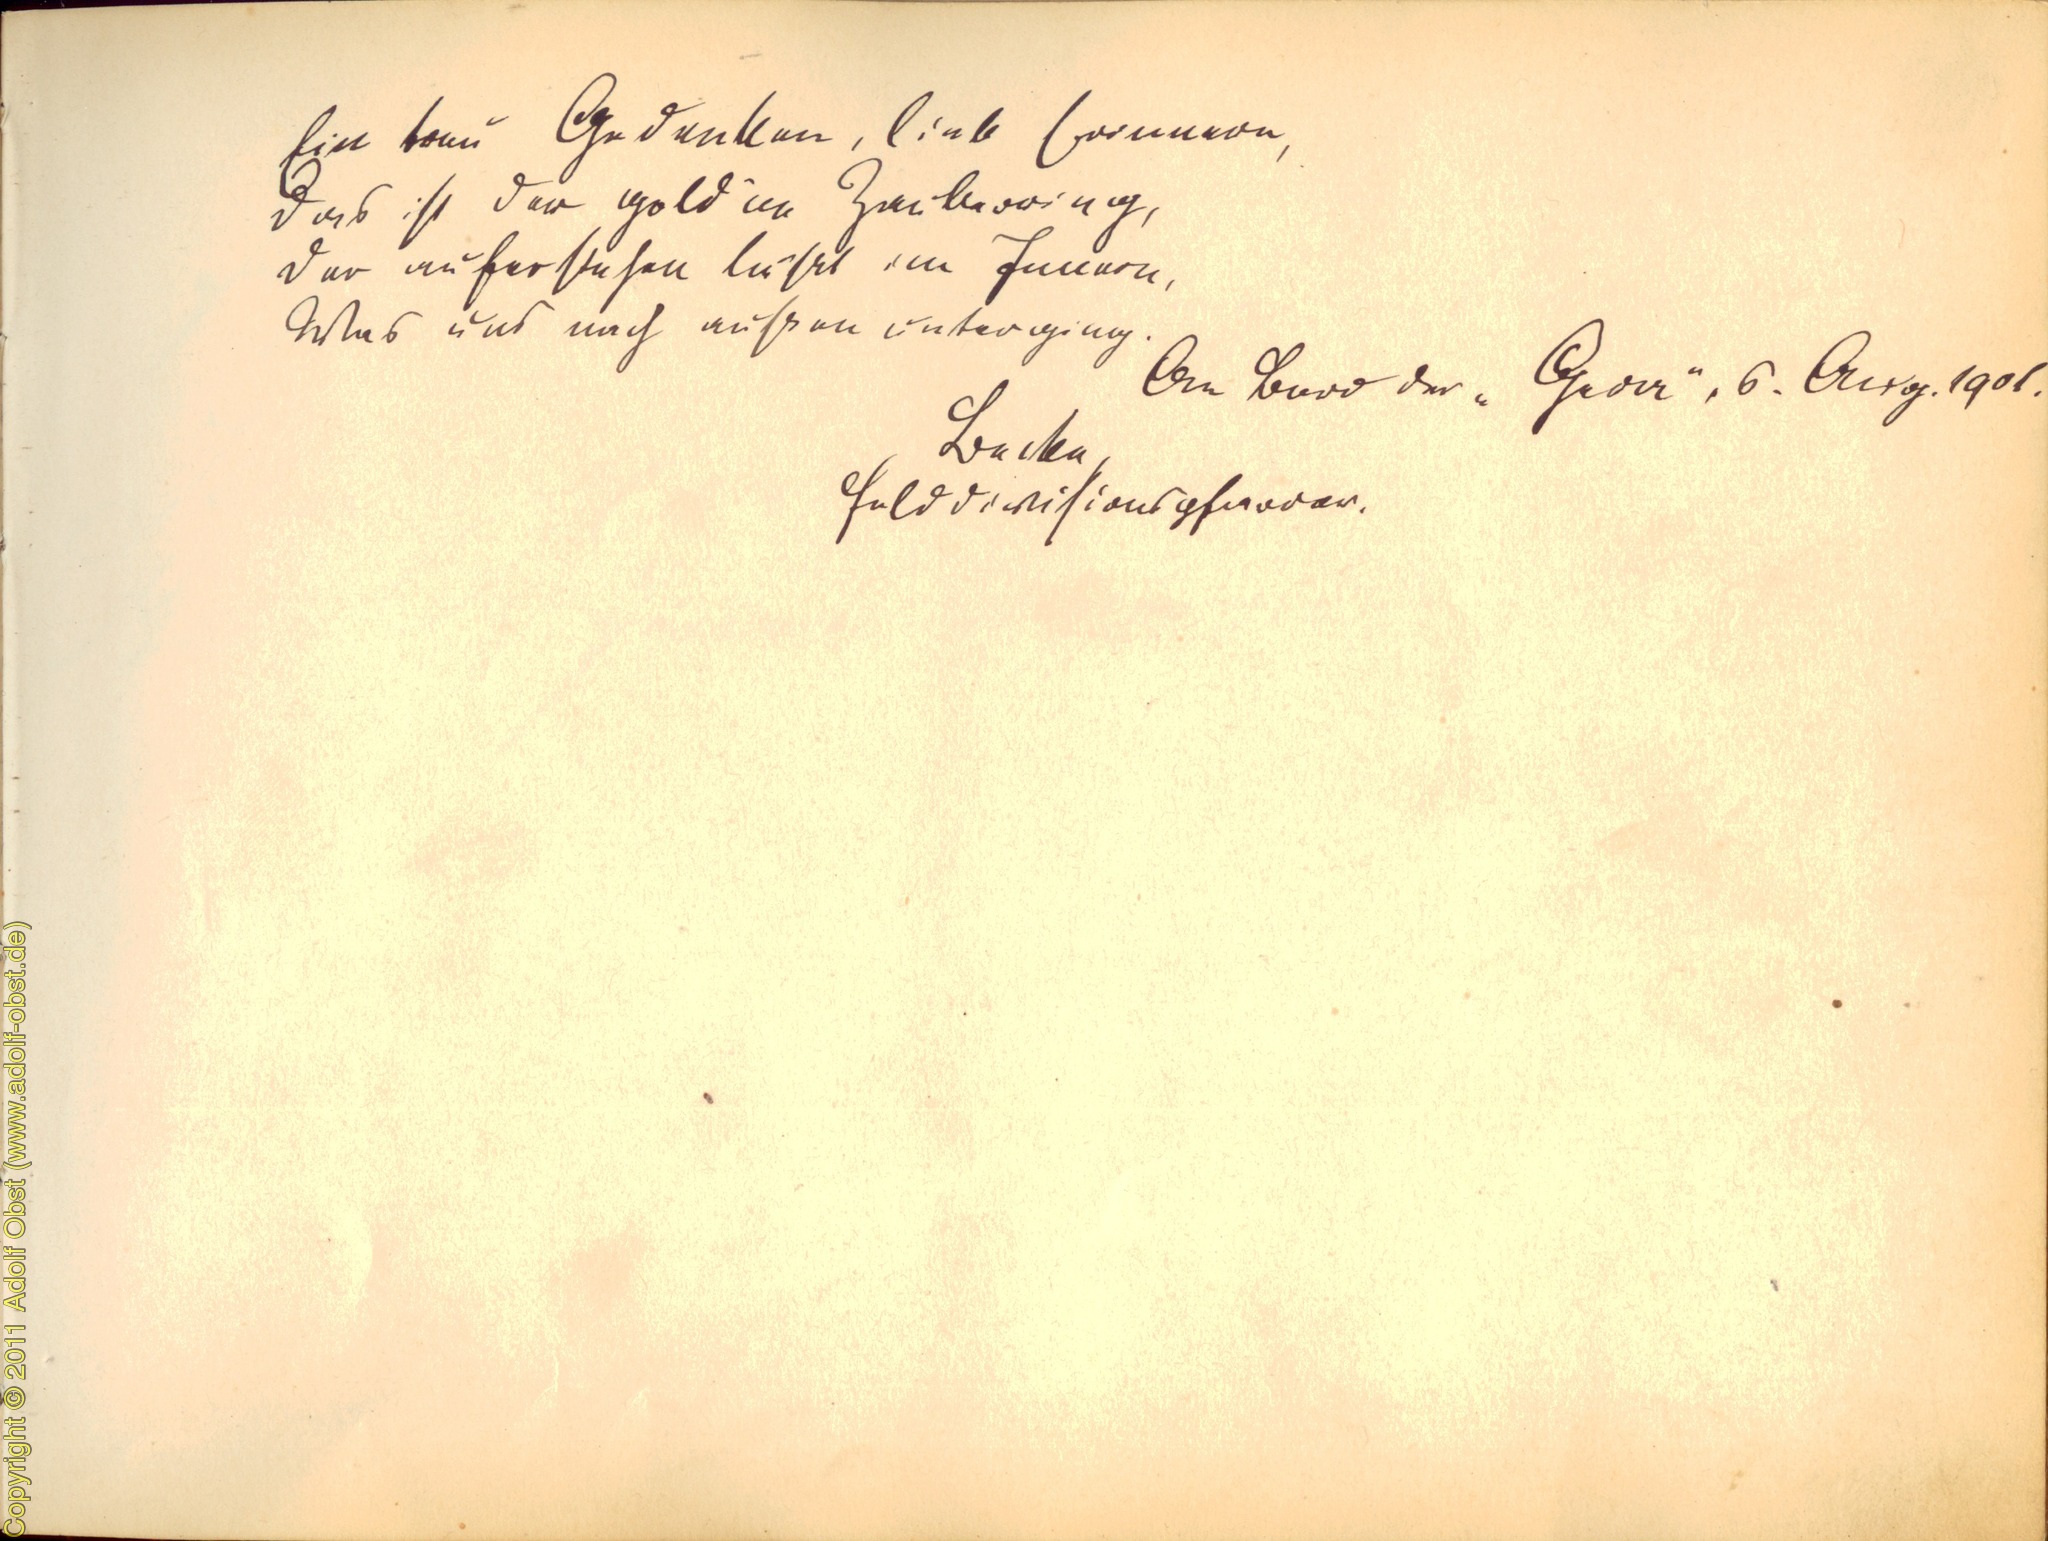 Ein treu Gedenken, lieb Erinnern,
Das ist der gold'ne Zauberring,
Der auferstehen läßt im Innern,
Was uns nach außen unterging.
An Bord der „Gera", 6. Aug. 1901.
Felddivisionspfarrer.
Copyright © 2011 Adolf Obst (www.adolf-obst.de)